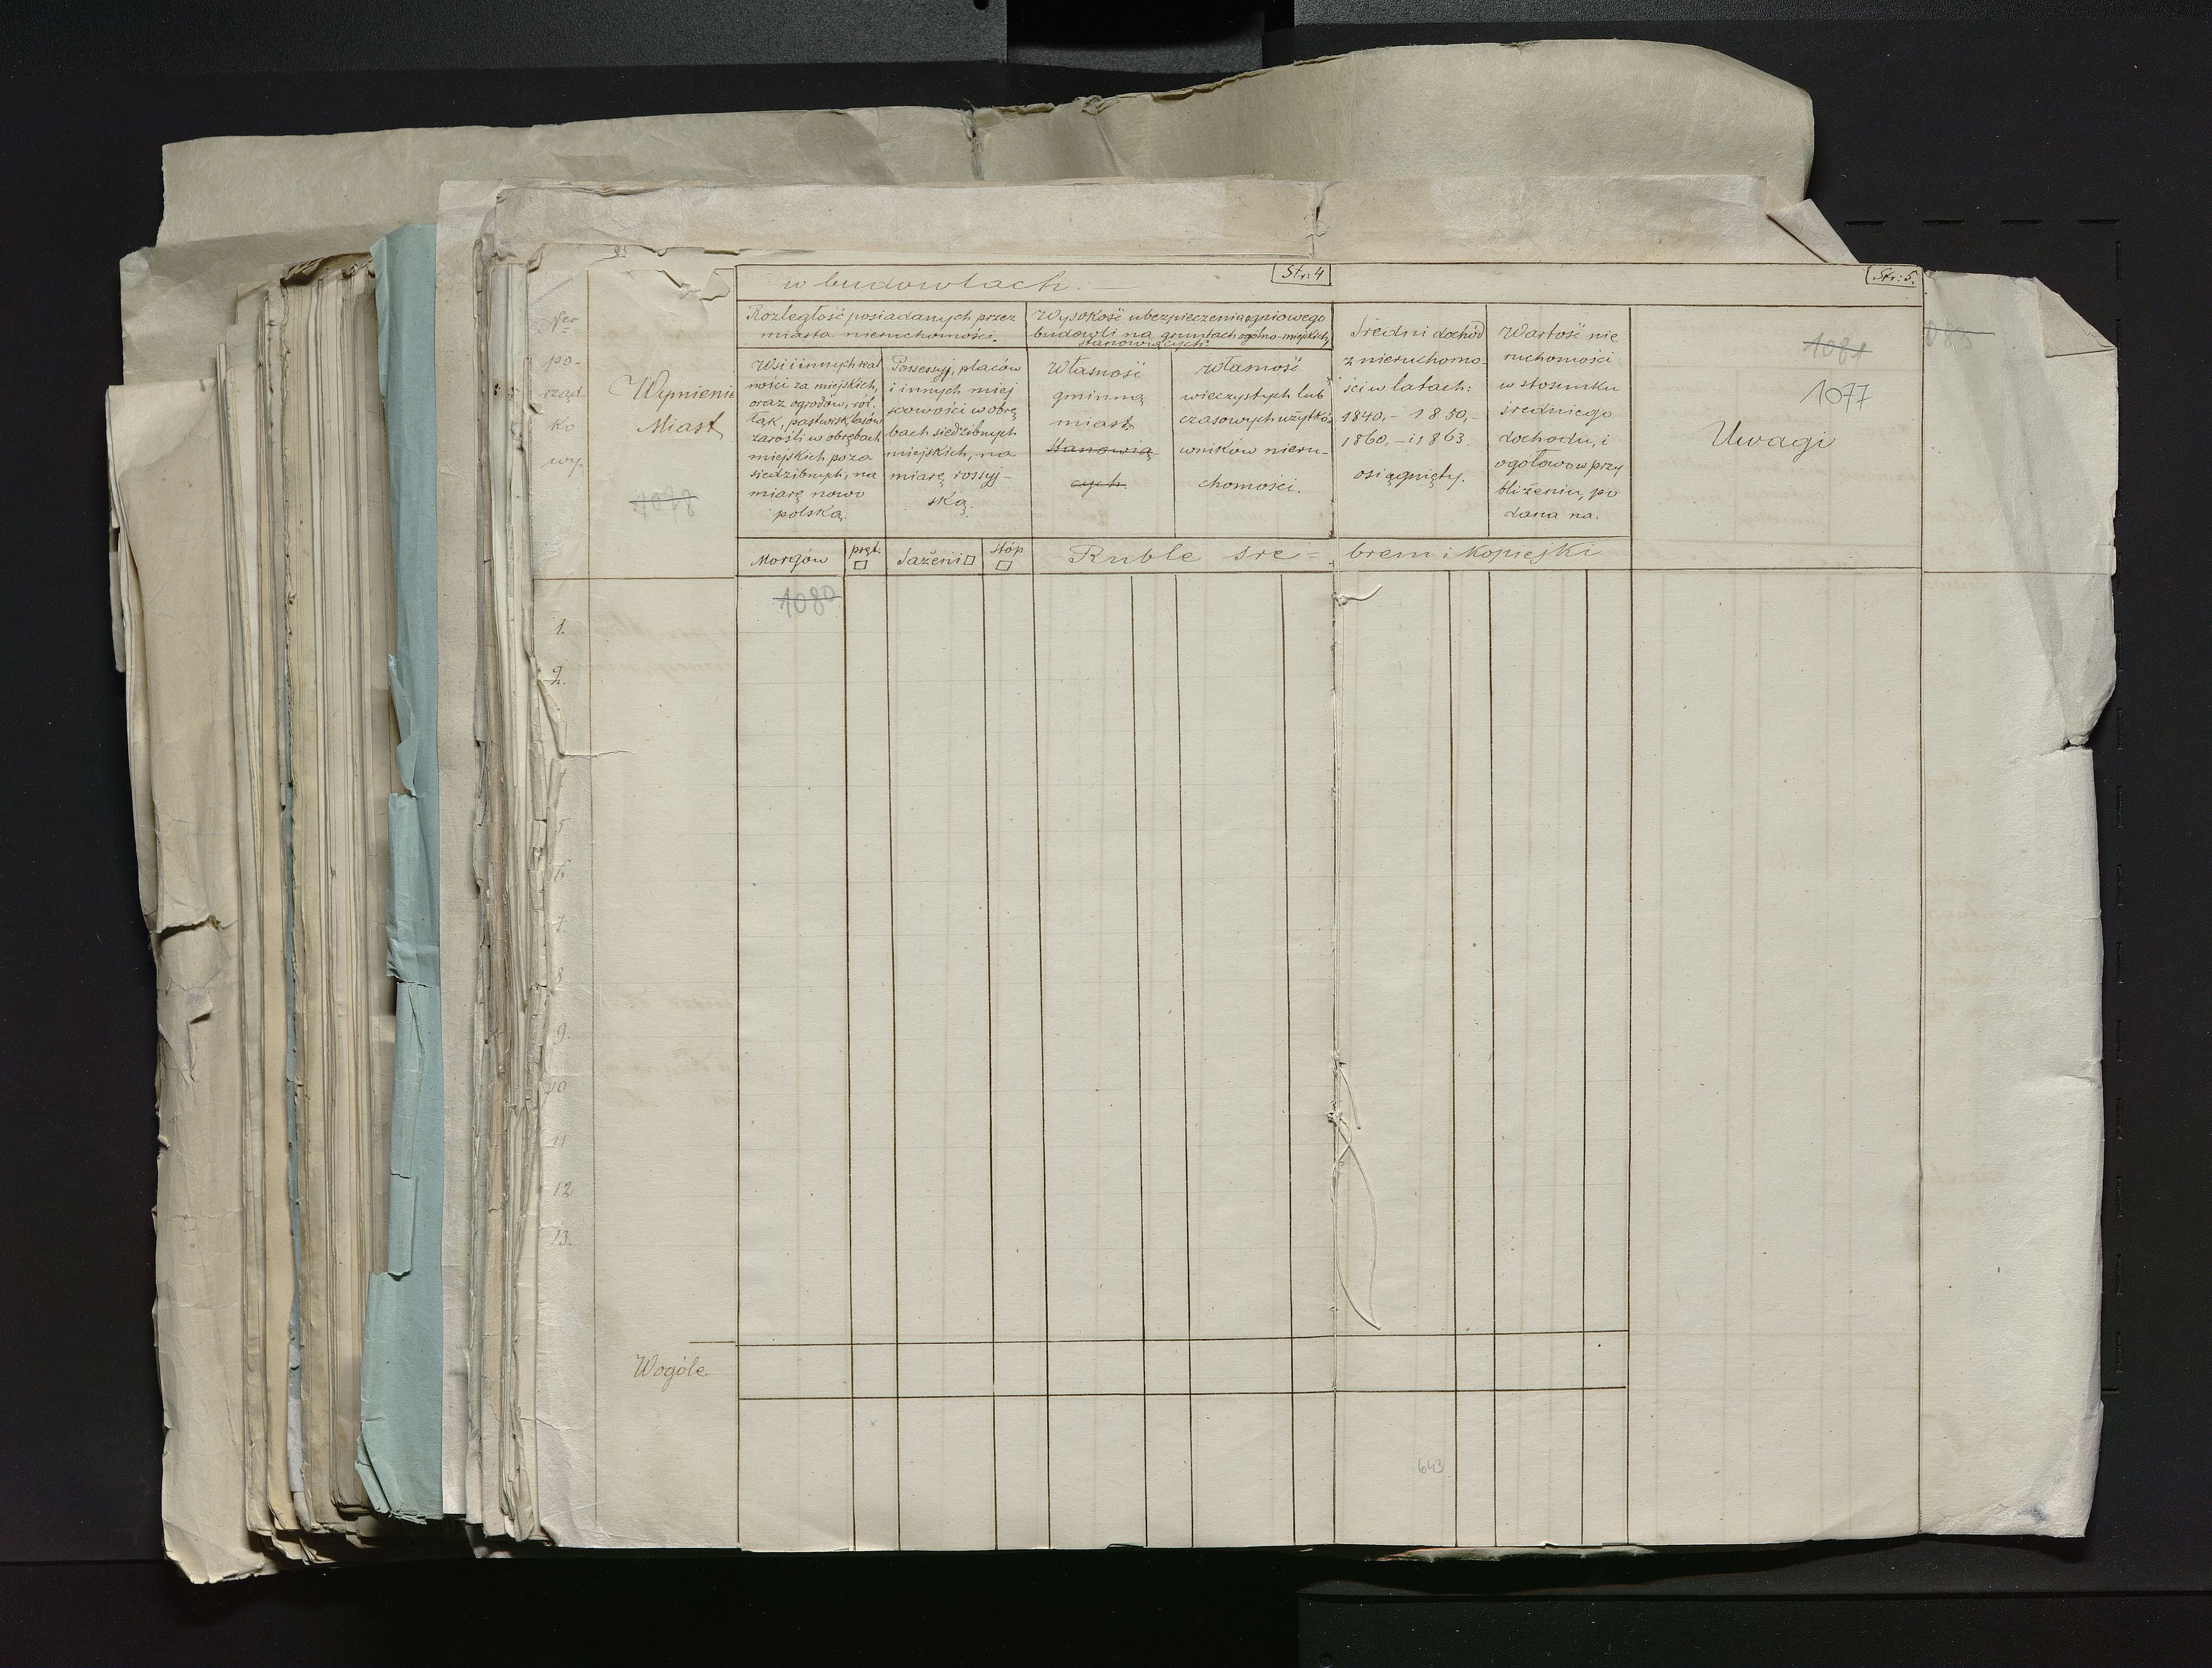 w budowlach. —
Str: 4
Str: 5.
Ner
po-
rząd
ko
wy.
Wymienie
Miast
1078
Rozległość posiadanych przez
miasta nieruchomości.
Wsi i innych real
ności za miejskich,
oraz ogrodów, ról,
łąk, pastwisk, lasów
zarośli w obrębach
miejskich poza
siedzibnych, na
miarę nowo
polską.
Possessyj, placów
i innych miej
scowości w obrę
bach siedzibnych
miejskich, na
miarę rossyj-
ską.
Wysokość ubezpieczenia ogniowego
budowli na gruntach ogólno-miejskich,
stanowiących:
Własność
gminną
miast
stanowią
cych.
własność
wieczystych lub
czasowych użytko
wników nieru-
chomości.
Średni dochód
z nieruchomo
ści w latach:
1840,- 1850,-
1860,- i 1863.
osiągnięty.
Wartość nie
ruchomości
w stosunku
średniego
dochodu, i
ogółowo w przy
bliżeniu, po
dana na.
1081
1077
Uwagi
083
Morgów
pręt.
Sażeni
stóp
Ruble sre= brem i kopiejki
1080
1.
2.
5
6
7.
8
9.
10
11
12
13.
Wogóle
643